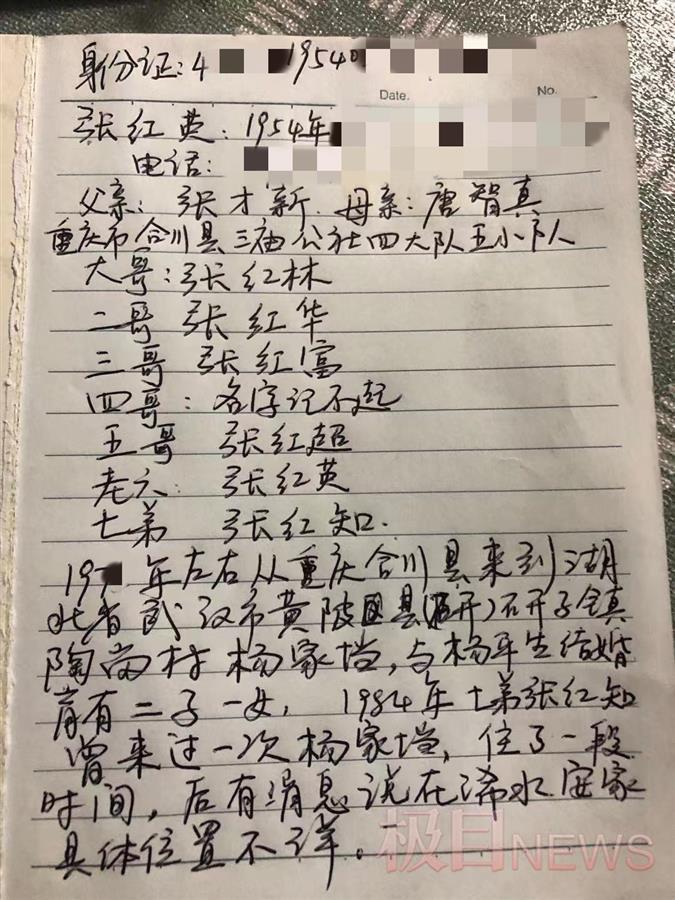 身份证：4 1954
Date. No.
张红英：1954年
电话：
父亲：张才新. 母亲：唐智真
重庆市合川县三庙公社四大队五小队
大哥：张红林
二哥 张红华
三哥 张红富
四哥：名字记不起
五哥 张红超
老六：张红英
七弟 张红知.
19 年左右从重庆合川县来到湖
北省武汉市黄陂县石开子镇
陶岗村杨家垱，与杨平生结婚
育有二子一女，1984年七弟张红知
曾来过一次杨家垱，住了一段
时间，后有消息说在浠水安家
具体位置不详。
极目NEWS